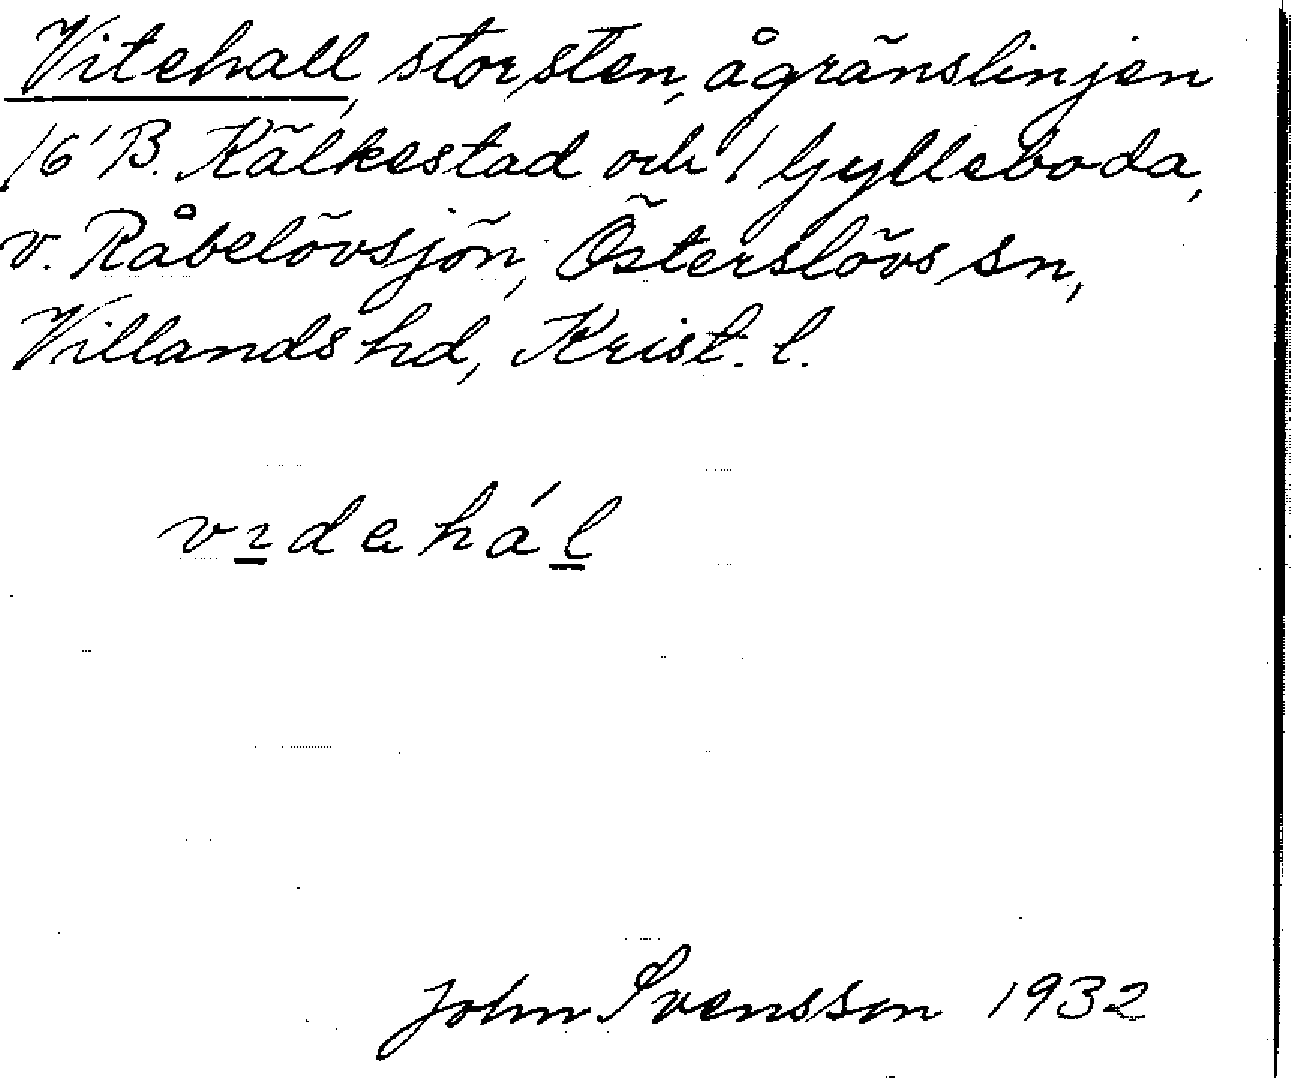 Vitehall, stor sten, å gränslinjen
16' B. Kälkestad och 1 Gylleboda,
v. Råbelövsjön, Österslövs sn,
Villands hd, Krist. l.
vıdahál
John Svensson 1932